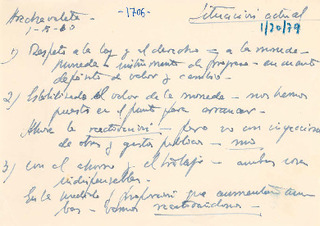 Arechavaleta - -1706- Situación actual
1-8-80 1/20/79
1) Respeto a la ley y el derecho - a la moneda -
moneda = instrumento de progreso - en cuanto
depósito de valor y cambio -
2) Estabilizado el valor de la moneda - nos hemos
puesto en el punto para arrancar -
Ahora la reactivación - pero no con inyecciones
de obras y gastos públicos -
3) Con el ahorro y el trabajo - ambas cosas
indispensables -
En la medida / proporción que aumentan am-
bas - vamos reactivándonos -